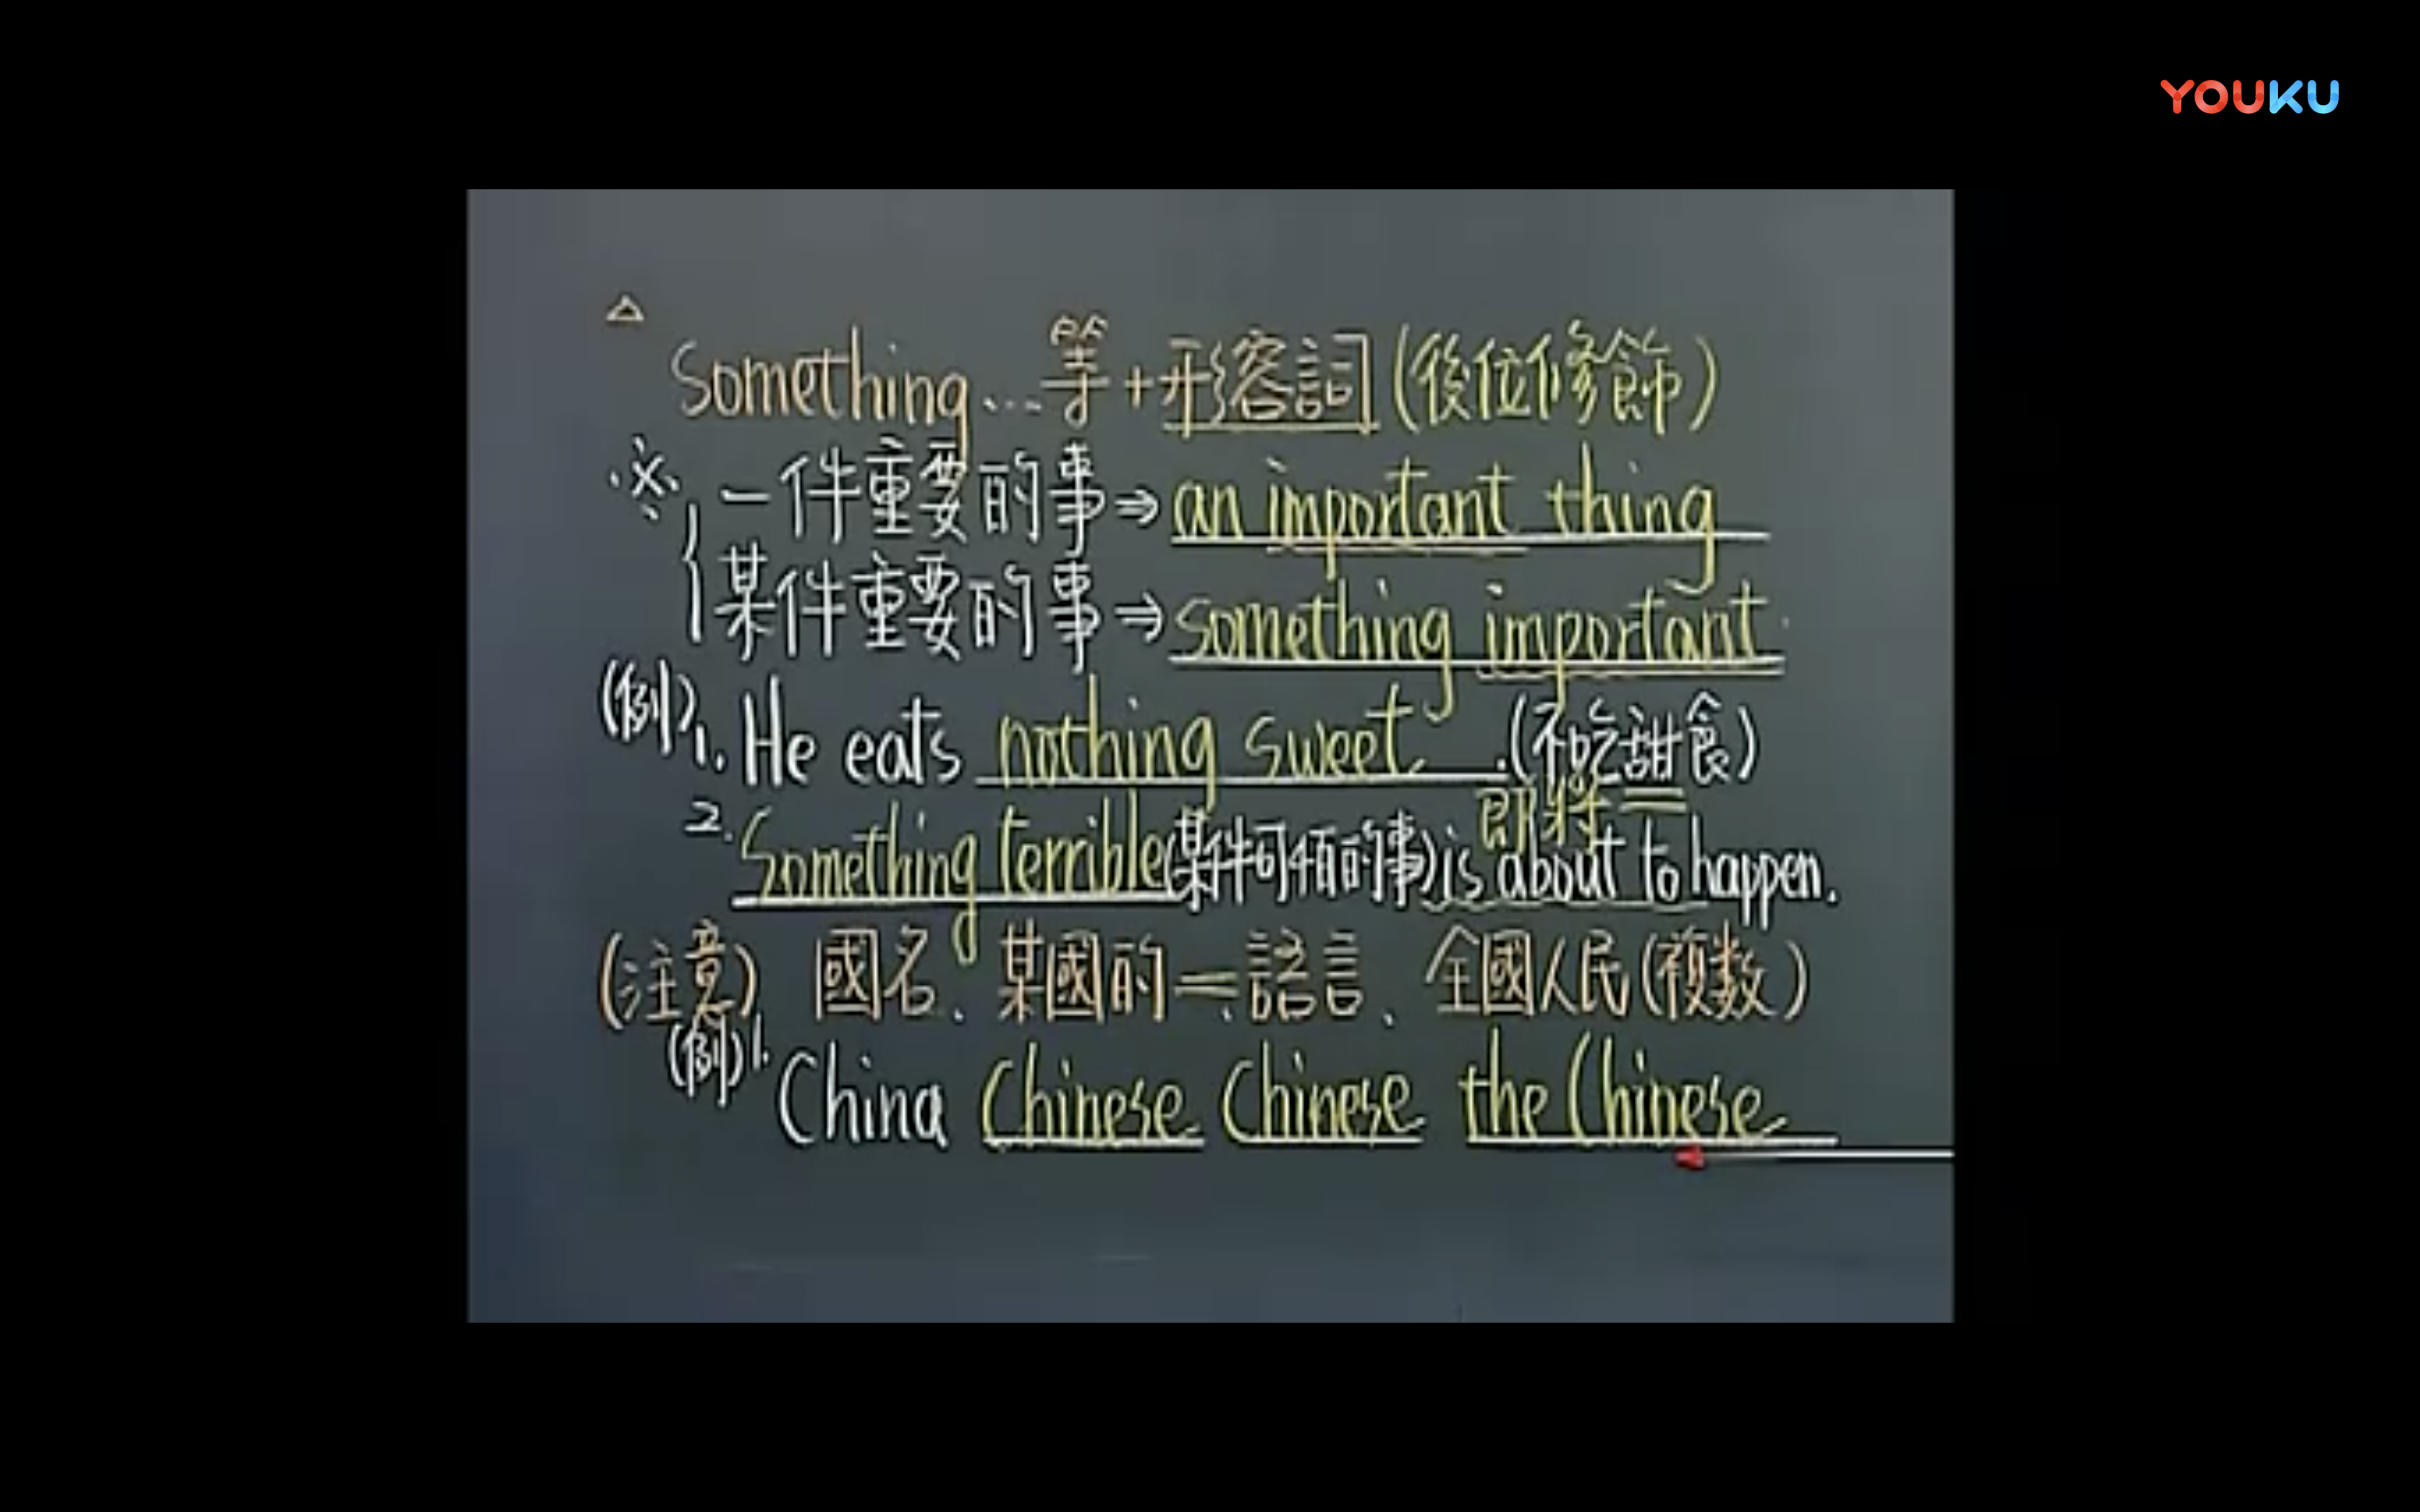 YOUKU
△
Something...等+形容詞(後位修飾)
※ 一件重要的事⇒an important thing
某件重要的事⇒something important
(例)1. He eats nothing sweet.(不吃甜食)
即將
2. Something terrible(某件可怕的事)is about to happen.
(注意) 國名、某國的=語言、全國人民(複數)
(例)1. China Chinese Chinese the Chinese